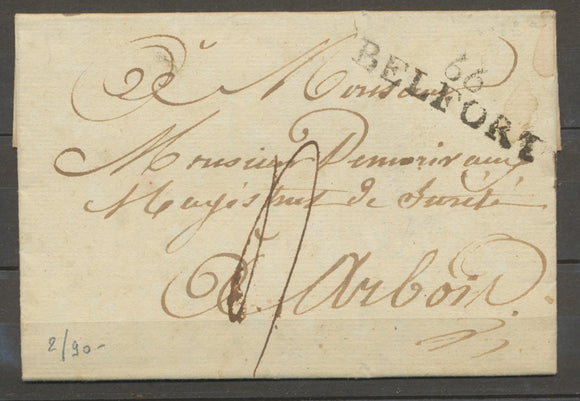 66
BELFORT
A Monsieur
Monsieur Demerivaux
Magistrat de Sureté
à Arbois.
2/90-